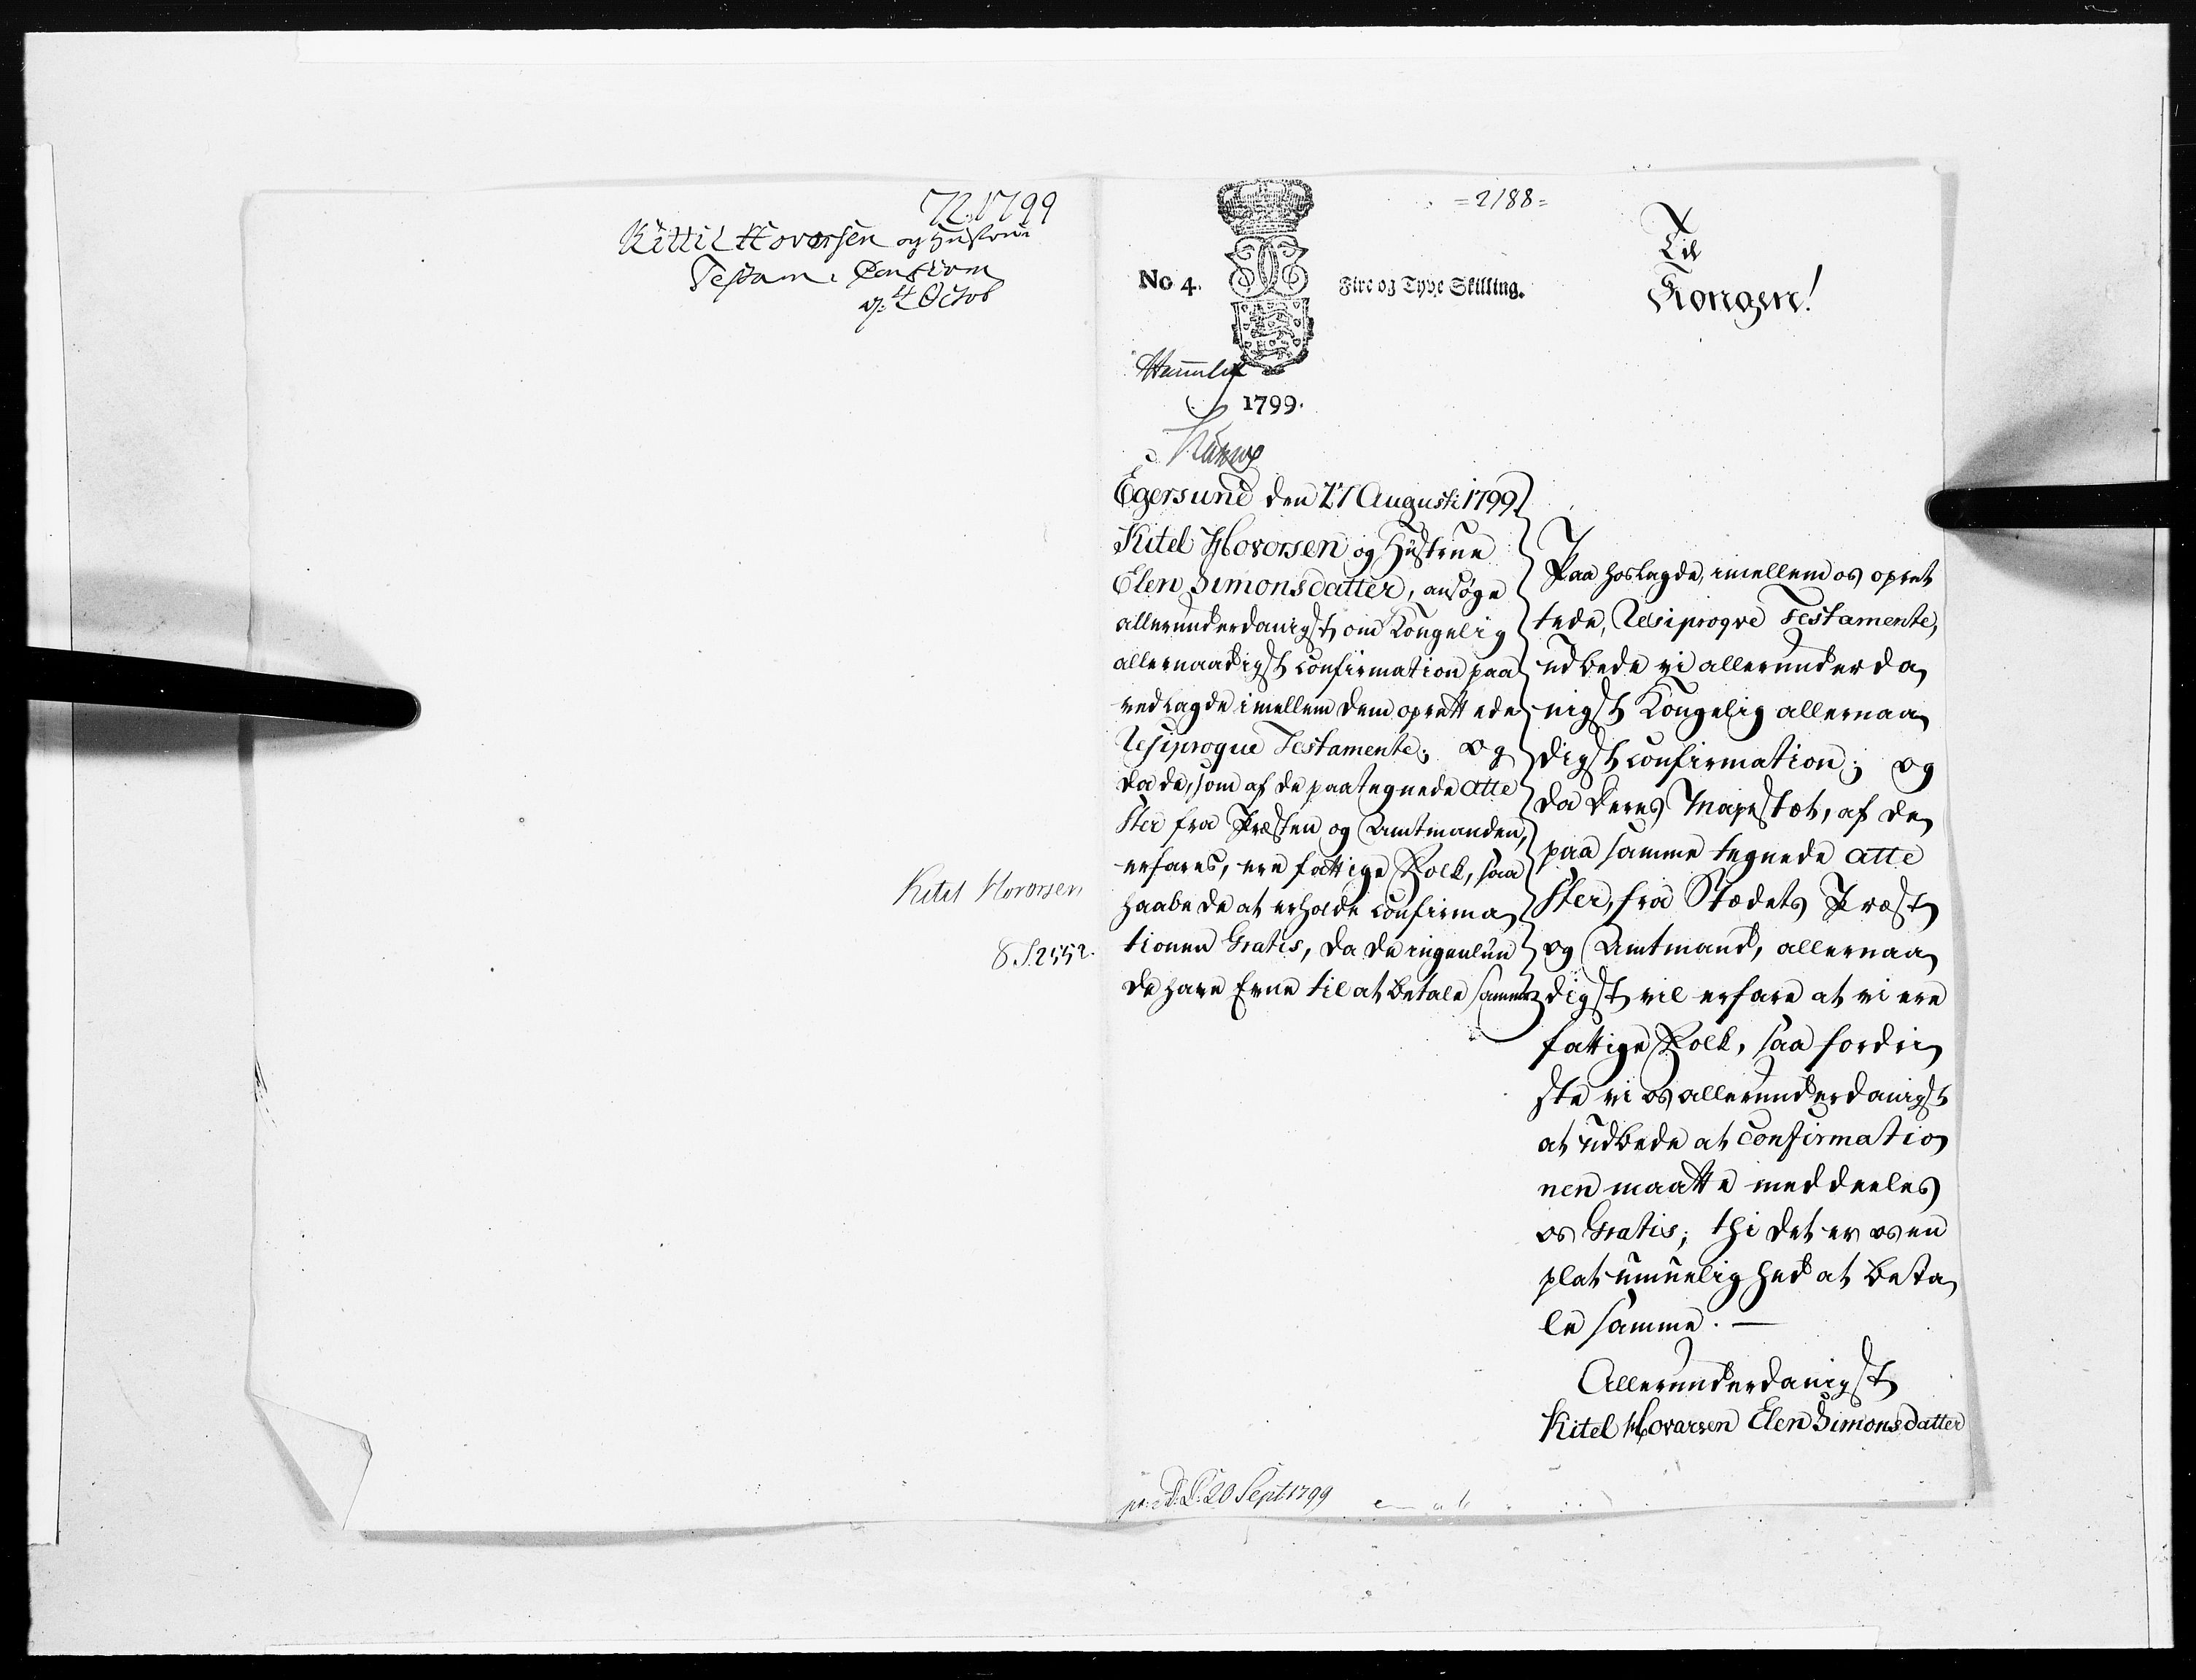 72. 1799
Kittil Hovorsen og Hustrue
Testam. Confirm
4 Octob
Kitel Hovorsen
8. S. 2552.
=2188=
No 4. Fire og Tyve Skilling.
1799.
Til
Kongen!
Egersund den 27 Augusti 1799.
Kitel Hovorsen og Hustrue
Elen Simonsdatter, ansøge
allerunderdanigst om Kongelig
allernaadigst Confirmation paa
vedlagde imellem dem oprettede
Resiproque Testamente; og
da de, som af de paategnede Atte
ster fra Præsten og Amtmanden,
erfares, ere fattige Folk, saa
haabe de at erholde Confirma
tionen Gratis, da de ingenlun
de have Evne til at betale samme
Paa hoslagde, imellem os opret
tede, Resiproqve Testamente,
udbede vi allerunderda
nigst Kongelig allernaa
digst Confirmation; og
da Deres Majestæt, af de
paa samme tegnede Atte
ster, fra Stædets Præst
og Amtmand, allernaa
digst vil erfare at vi ere
fattige Folk, saa fordri
ste vi os allerunderdanigst
at udbede at Confirmatio
nen maatte meddeeles
os Gratis; thi det er os en
plat umuelighed at beta
le samme. —
Allerunderdanigst
Kitel Hovarsen Elen Simonsdatter
pr: D: L: 20 Sept 1799